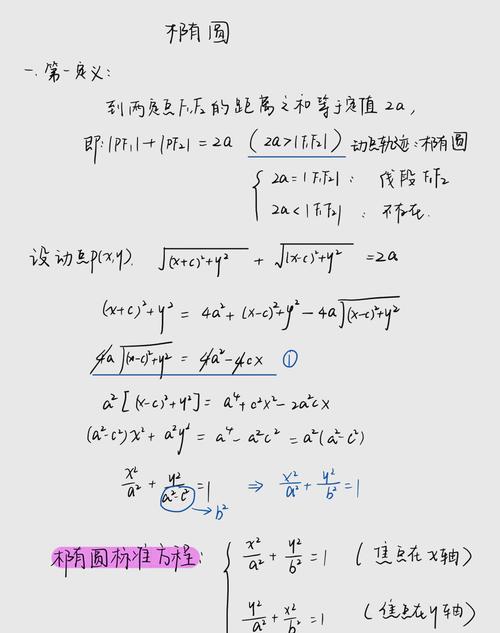 椭圆
一. 第一定义:
到两定点F₁F₂的距离之和等于定值2a,
即:|PF₁|+|PF₂|=2a (2a>|F₁F₂|) 动点轨迹:椭圆
{ 2a=|F₁F₂|: 线段F₁F₂
2a<|F₁F₂|: 不存在.
设动点P(x,y). √((x+c)²+y²) + √((x-c)²+y²) =2a
(x+c)²+y² = 4a²+(x-c)²+y²-4a√((x-c)²+y²)
4a√((x-c)²+y²) = 4a²-4cx ①
a²[(x-c)²+y²] = a⁴+c²x²-2a²cx
(a²-c²)x²+a²y² = a⁴-a²c² = a²(a²-c²)
x²/a² + y²/(a²-c²) =1 ⇒ x²/a² + y²/b² =1
→b²
椭圆标准方程: { x²/a² + y²/b² =1 (焦点在x轴)
y²/a² + x²/b² =1 (焦点在y轴)